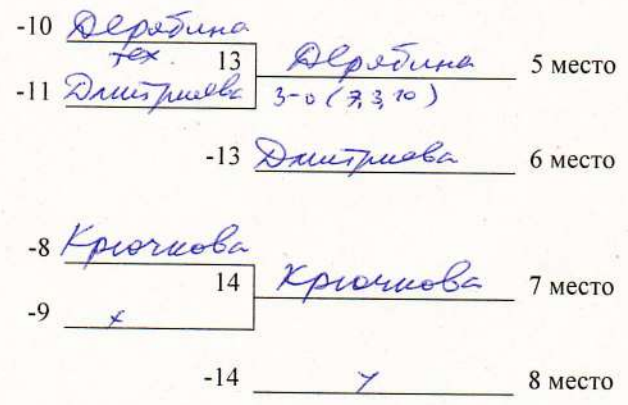 -10 Дерябина
тех. 13 Дерябина 5 место
-11 Дмитриева 3-0 (7,3,10)
-13 Дмитриева 6 место
-8 Крючкова
14 Крючкова 7 место
-9 х
-14 х 8 место